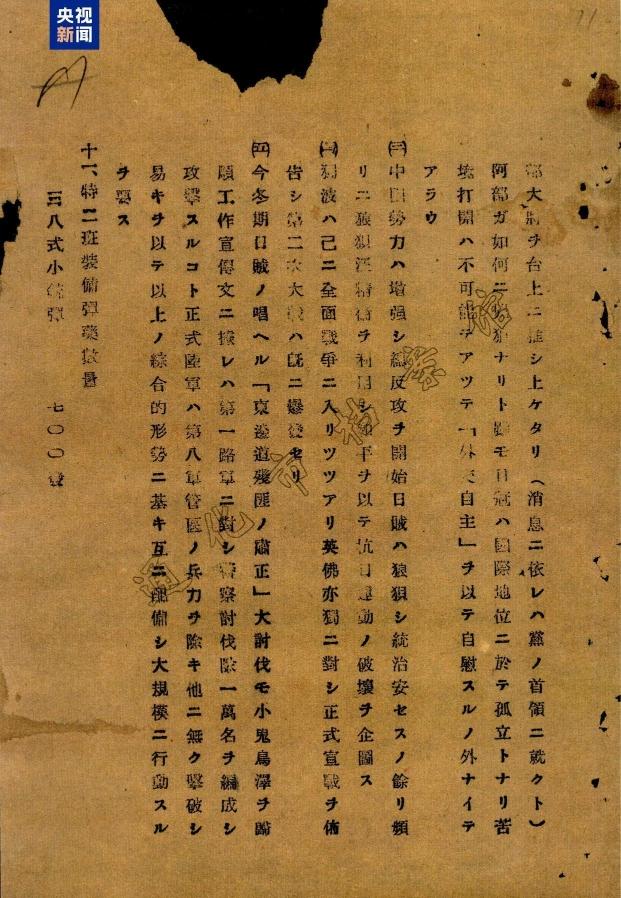 央视
新闻
71
部大將ヲ台上ニ推シ上ケタリ（消息ニ依レハ黨ノ首領ニ就クト）
阿部ガ如何ニナリト雖モ日寇ハ國際地位ニ於テ孤立トナリ苦
境打開ハ不可能デアツテ「外交自主」ヲ以テ自慰スルノ外ナイデ
アラウ
㈢中國勢力ハ增强シ總反攻ヲ開始日賊ハ狼狽シ統治安セスノ餘リ頻
リニ狼狽汪精衛ヲ利用シ和平ヲ以テ抗日運動ノ破壞ヲ企圖ス
獨波ハ己ニ全面戰爭ニ入リツツアリ英佛亦獨ニ對シ正式宣戰ヲ佈
告シ第二次大戰ハ既ニ爆發セリ
今冬期日賊ノ唱ヘル「東邊道殘匪ノ肅正」大討伐モ小鬼鳥澤ヲ
順工作宣傳文ニ據レハ第一路軍ニ對シ警察討伐隊一萬名ヲ編成シ
攻擊スルコト正式陸軍ハ第八軍管區ノ兵力ヲ除キ他ニ無ク擊破シ
易キヲ以テ以上ノ綜合的形勢ニ基キ互ニ配備シ大規模ニ行動スル
ヲ要ス
十一、特二班裝備彈藥數量
三八式小銃彈　七〇〇發
通化市档案馆